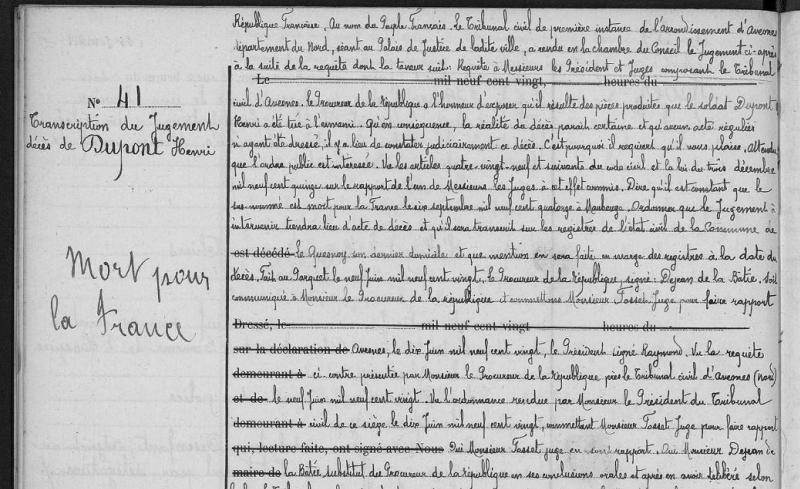 République Française. Au nom du Peuple Français. Le Tribunal civil de première instance de l'arrondissement d'Avesnes
département du Nord, séant au Palais de Justice de ladite ville, a rendu en la chambre du Conseil le Jugement ci-après
à la suite de la requête dont la teneur suit: Requête à Messieurs les Président et Juges composant le Tribunal
Le mil neuf cent vingt, heures du
civil d'Avesnes. Le Procureur de la République a l'honneur d'exposer qu'il résulte des pièces produites que le soldat Dupont
N° 41
Henri a été tué à l'ennemi. Qu'en conséquence, la réalité du décès parait certaine et qu'aucun acte régulier
Transcription du Jugement
n'ayant été dressé, il y a lieu de constater judiciairement ce décès. C'est pourquoi il requiert qu'il vous plaise. Attendu
décès de Dupont Henri
que l'ordre public est intéressé. Vu les articles quatre-vingt-neuf et suivants du code civil et la loi du trois décembre
mil neuf cent quinze sur le rapport de l'un de Messieurs les Juges à cet effet commis. Dire qu'il est constant que le
sus-nommé est mort pour la France le six septembre mil neuf cent quatorze à Maubeuge. Ordonner que le Jugement à
intervenir tiendra lieu d'acte de décès et qu'il sera transcrit sur les registres de l'état civil de la Commune de
est décédé Le Quesnoy son dernier domicile et que mention en sera faite en marge des registres à la date du
Mort pour
décès. Fait au Parquet le neuf Juin mil neuf cent vingt. Le Procureur de la République, signé: Dejean de la Batie. Soit
communiqué à Monsieur le Procureur de la république et commettons Monsieur Tosset Juge pour faire rapport
la France
Dressé, le mil neuf cent vingt heures du
sur la déclaration de Avesnes, le dix Juin mil neuf cent vingt, le Président signé Raymond. Vu la requête
demeurant à ci contre présentée par Monsieur le Procureur de la République près le Tribunal civil d'Avesnes (Nord)
et de le neuf Juin mil neuf cent vingt. Vu l'ordonnance rendue par Monsieur le Président du Tribunal
demeurant à civil de ce siège le dix Juin mil neuf cent vingt, commettant Monsieur Tosset Juge pour faire rapport
qui, lecture faite, ont signé avec Nous Oui Monsieur Tosset juge en son rapport. Oui Monsieur Dejean de
maire de la Batie substitut du Procureur de la République en ses conclusions orales et après en avoir délibéré selon